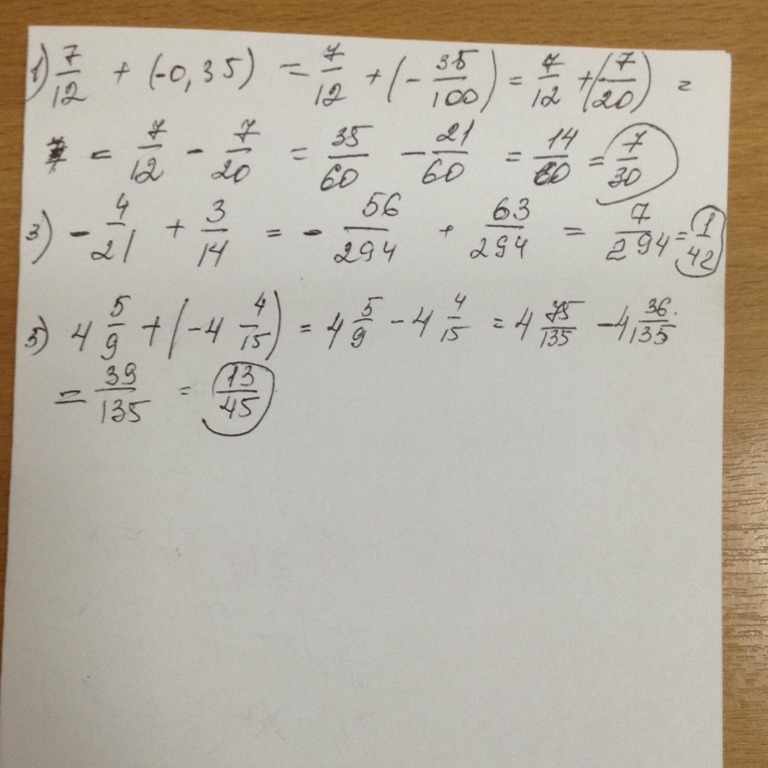 1) 7/12 + (-0,35) = 7/12 + (- 35/100) = 7/12 + (- 7/20) =
= 7/12 - 7/20 = 35/60 - 21/60 = 14/60 = 7/30
3) - 4/21 + 3/14 = - 56/294 + 63/294 = 7/294 = 1/42
5) 4 5/9 + (-4 4/15) = 4 5/9 - 4 4/15 = 4 75/135 - 4 36/135
= 39/135 = 13/45